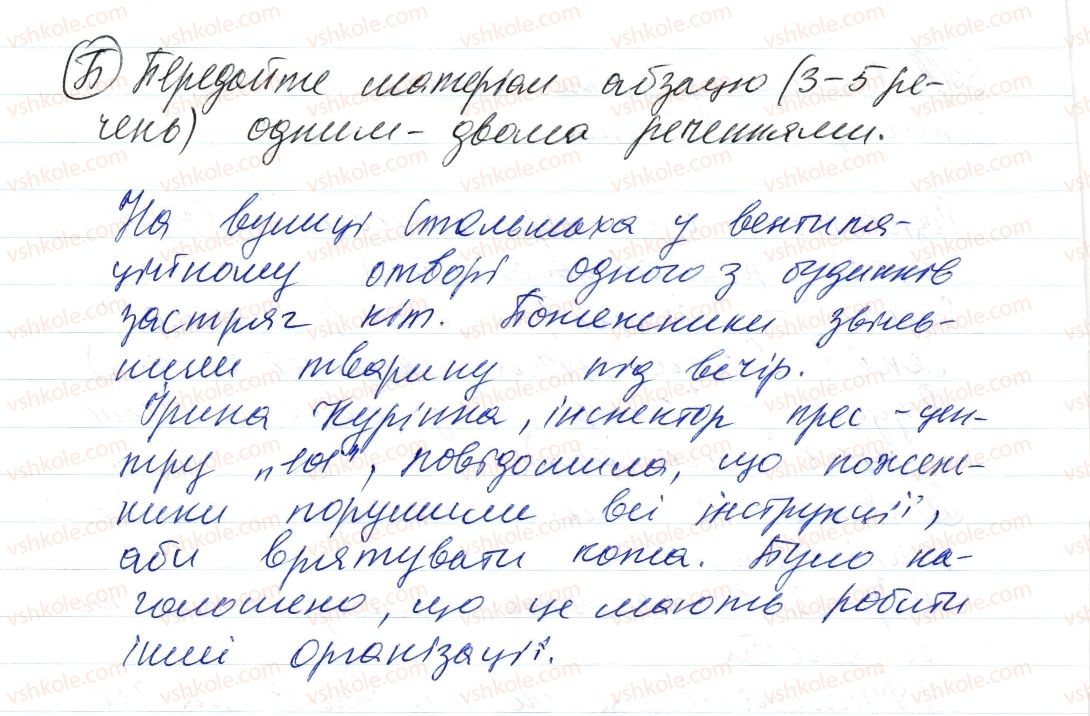 Б Передайте матеріал абзацю (3-5 ре-
чень) одним-двома реченнями.
На вулиці Стальмаха у вентиля-
ційному отворі одного з будинків
застряг кіт. Пожежники звіль-
нили тварину під вечір.
Ірина Курінна, інспектор прес-цен-
тру "101", повідомила, що пожеж-
ники порушили всі інструкції,
аби врятувати кота. Було на-
голошено, що це мають робити
інші організації.